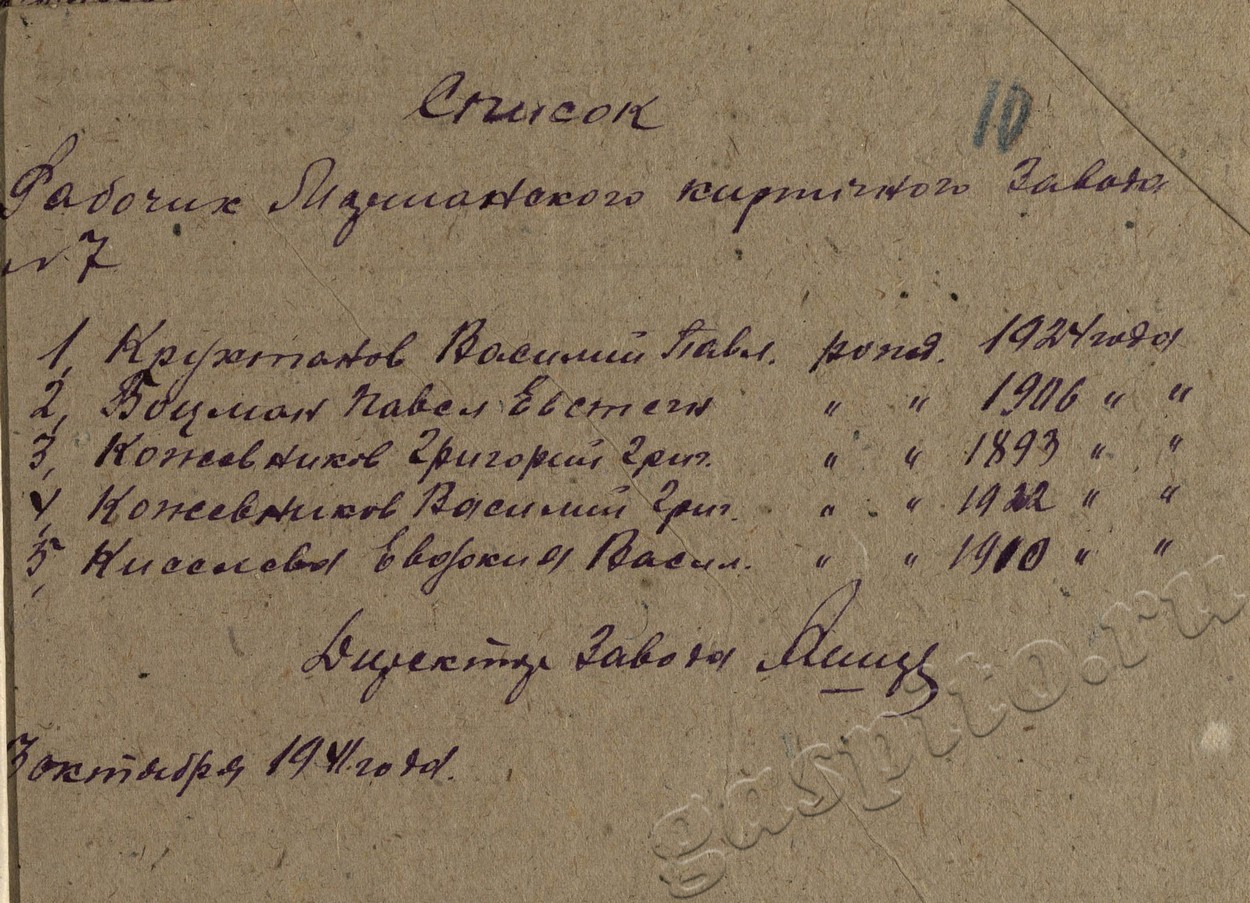 Список
10
Рабочих кирпичного Завода
№ 7
1, Крухтанов Василий Павл. рожд. 1924 года
2, Боцман Павел Евстегн " " 1906 " "
3, Кожевников Григорий Григ. " " 1893 " "
4, Кожевников Василий Григ. " " 1922 " "
5, Киселева Евдокия Васил. " " 1910 " "
Директор Завода
3 октября 1941 года.
gaspito.ru